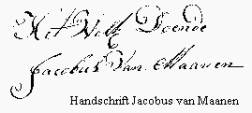 Het Welk Doende
Jacobus van Maanen
Handschrift Jacobus van Maanen